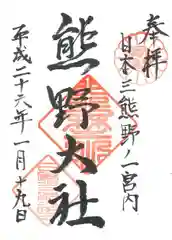 奉拝
日本三熊野ノ一宮内
熊野大社
平成二十六年一月十九日